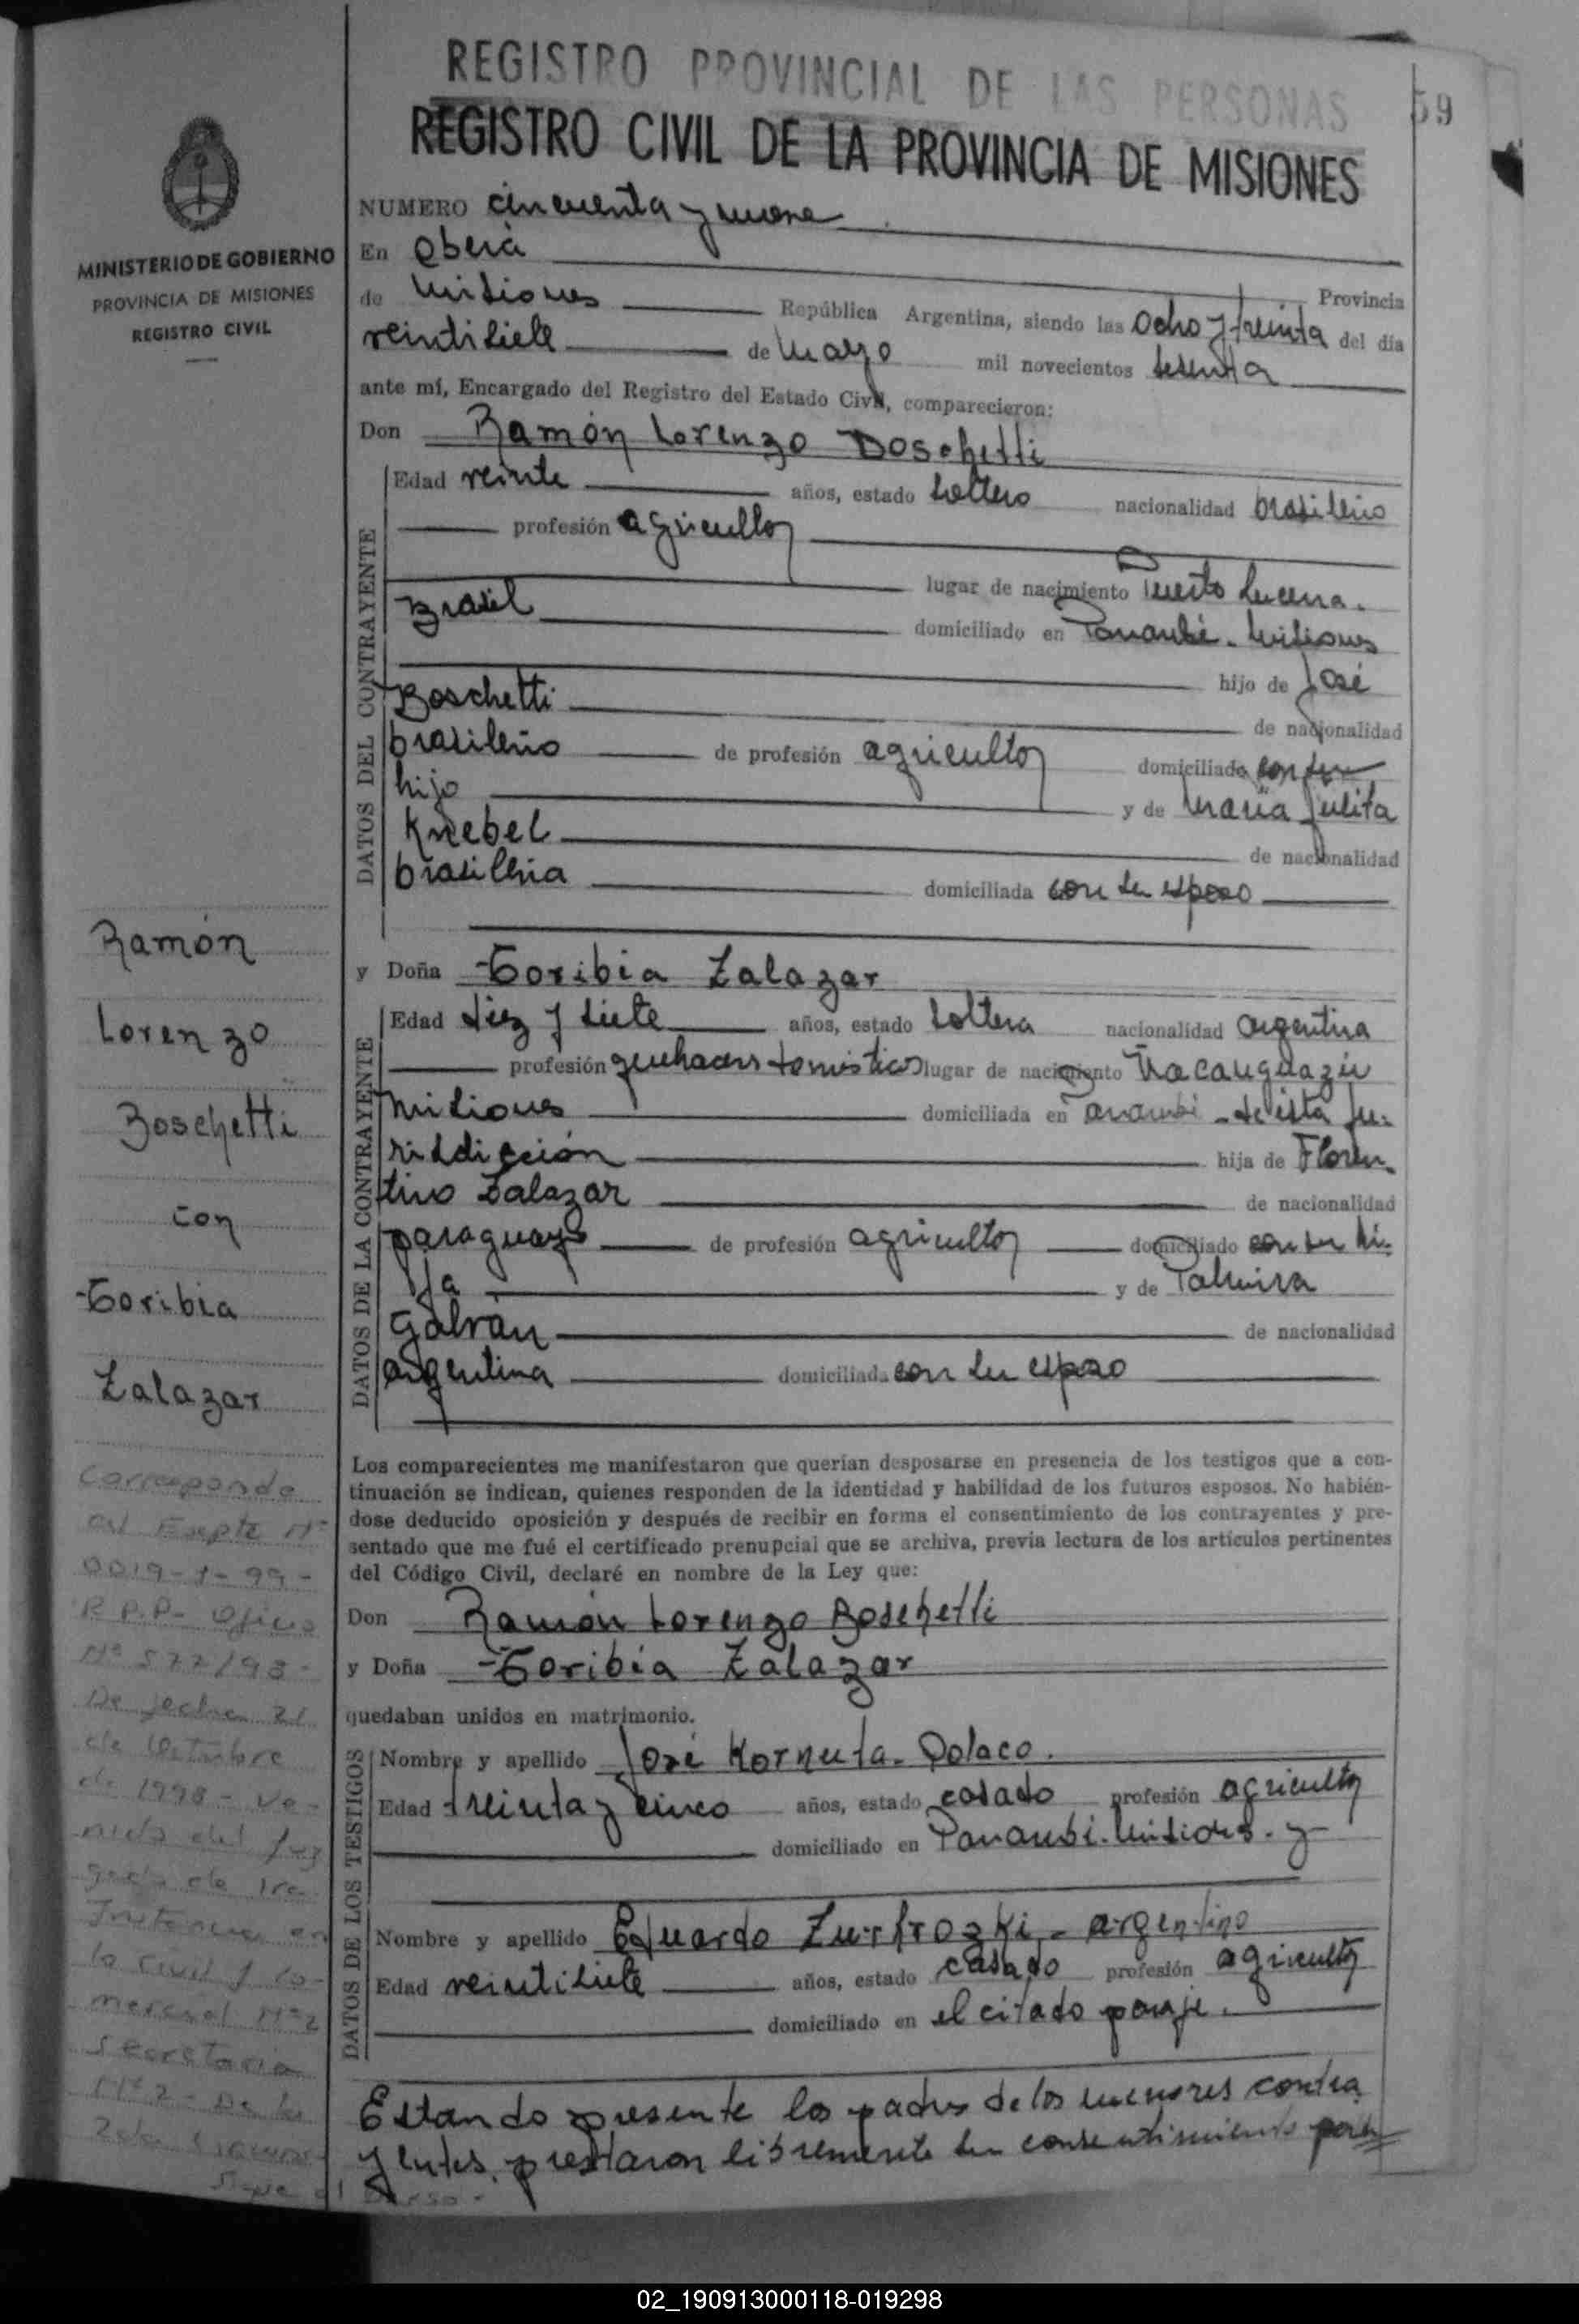 REGISTRO PROVINCIAL DE LAS PERSONAS
59
REGISTRO CIVIL DE LA PROVINCIA DE MISIONES
MINISTERIO DE GOBIERNO
PROVINCIA DE MISIONES
REGISTRO CIVIL
NUMERO cincuenta y nueve
En Oberá
Provincia
de Misiones República Argentina, siendo las Ocho y treinta del día
veintisiete de Marzo mil novecientos sesenta
ante mí, Encargado del Registro del Estado Civil, comparecieron:
Don Ramón Lorenzo Boschetti
DATOS DEL CONTRAYENTE
Edad veinte años, estado soltero nacionalidad brasileño
profesión agricultor
lugar de nacimiento Puerto Lucena.
Brasil domiciliado en Panambí. Misiones
hijo de José
Boschetti de nacionalidad
brasileño de profesión agricultor domiciliado con su
hijo y de María Julita
Knebel de nacionalidad
brasileña domiciliada con su esposo
y Doña Toribia Zalazar
DATOS DE LA CONTRAYENTE
Edad diez y siete años, estado soltera nacionalidad argentina
profesión quehaceres domésticos lugar de nacimiento
Misiones domiciliada en Panambí - de ésta ju-
risdicción hija de Floren-
tino Zalazar de nacionalidad
paraguayo de profesión agricultor domiciliado con su hi-
ja y de Palmira
Galván de nacionalidad
argentina domiciliada con su esposo
Los comparecientes me manifestaron que querían desposarse en presencia de los testigos que a con-
tinuación se indican, quienes responden de la identidad y habilidad de los futuros esposos. No habién-
dose deducido oposición y después de recibir en forma el consentimiento de los contrayentes y pre-
sentado que me fué el certificado prenupcial que se archiva, previa lectura de los artículos pertinentes
del Código Civil, declaré en nombre de la Ley que:
Don Ramón Lorenzo Boschetti
y Doña Toribia Zalazar
quedaban unidos en matrimonio.
DATOS DE LOS TESTIGOS
Nombre y apellido José Kornuta - Polaco.
Edad treinta y cinco años, estado casado profesión agricultor
domiciliado en Panambí. Misiones. y
Nombre y apellido Eduardo - argentino
Edad veintisiete años, estado casado profesión agricultor
domiciliado en el citado paraje.
Estando presente los padres de los menores contra
yentes, prestaron libremente su consentimiento para
Ramón
Lorenzo
Boschetti
con
Toribia
Zalazar
Corresponde
al Expte Nº
0019-1-99-
R.P.P- Oficio
Nº 577/98-
De fecha 21
de Octubre
de 1998 - Ve-
nido del Juz
gado de 1ra
Instancia en
lo civil y co-
mercial Nº 2
Secretaria
Nº 2 - De la
2da
Sigue al Dorso -
02_190913000118-019298